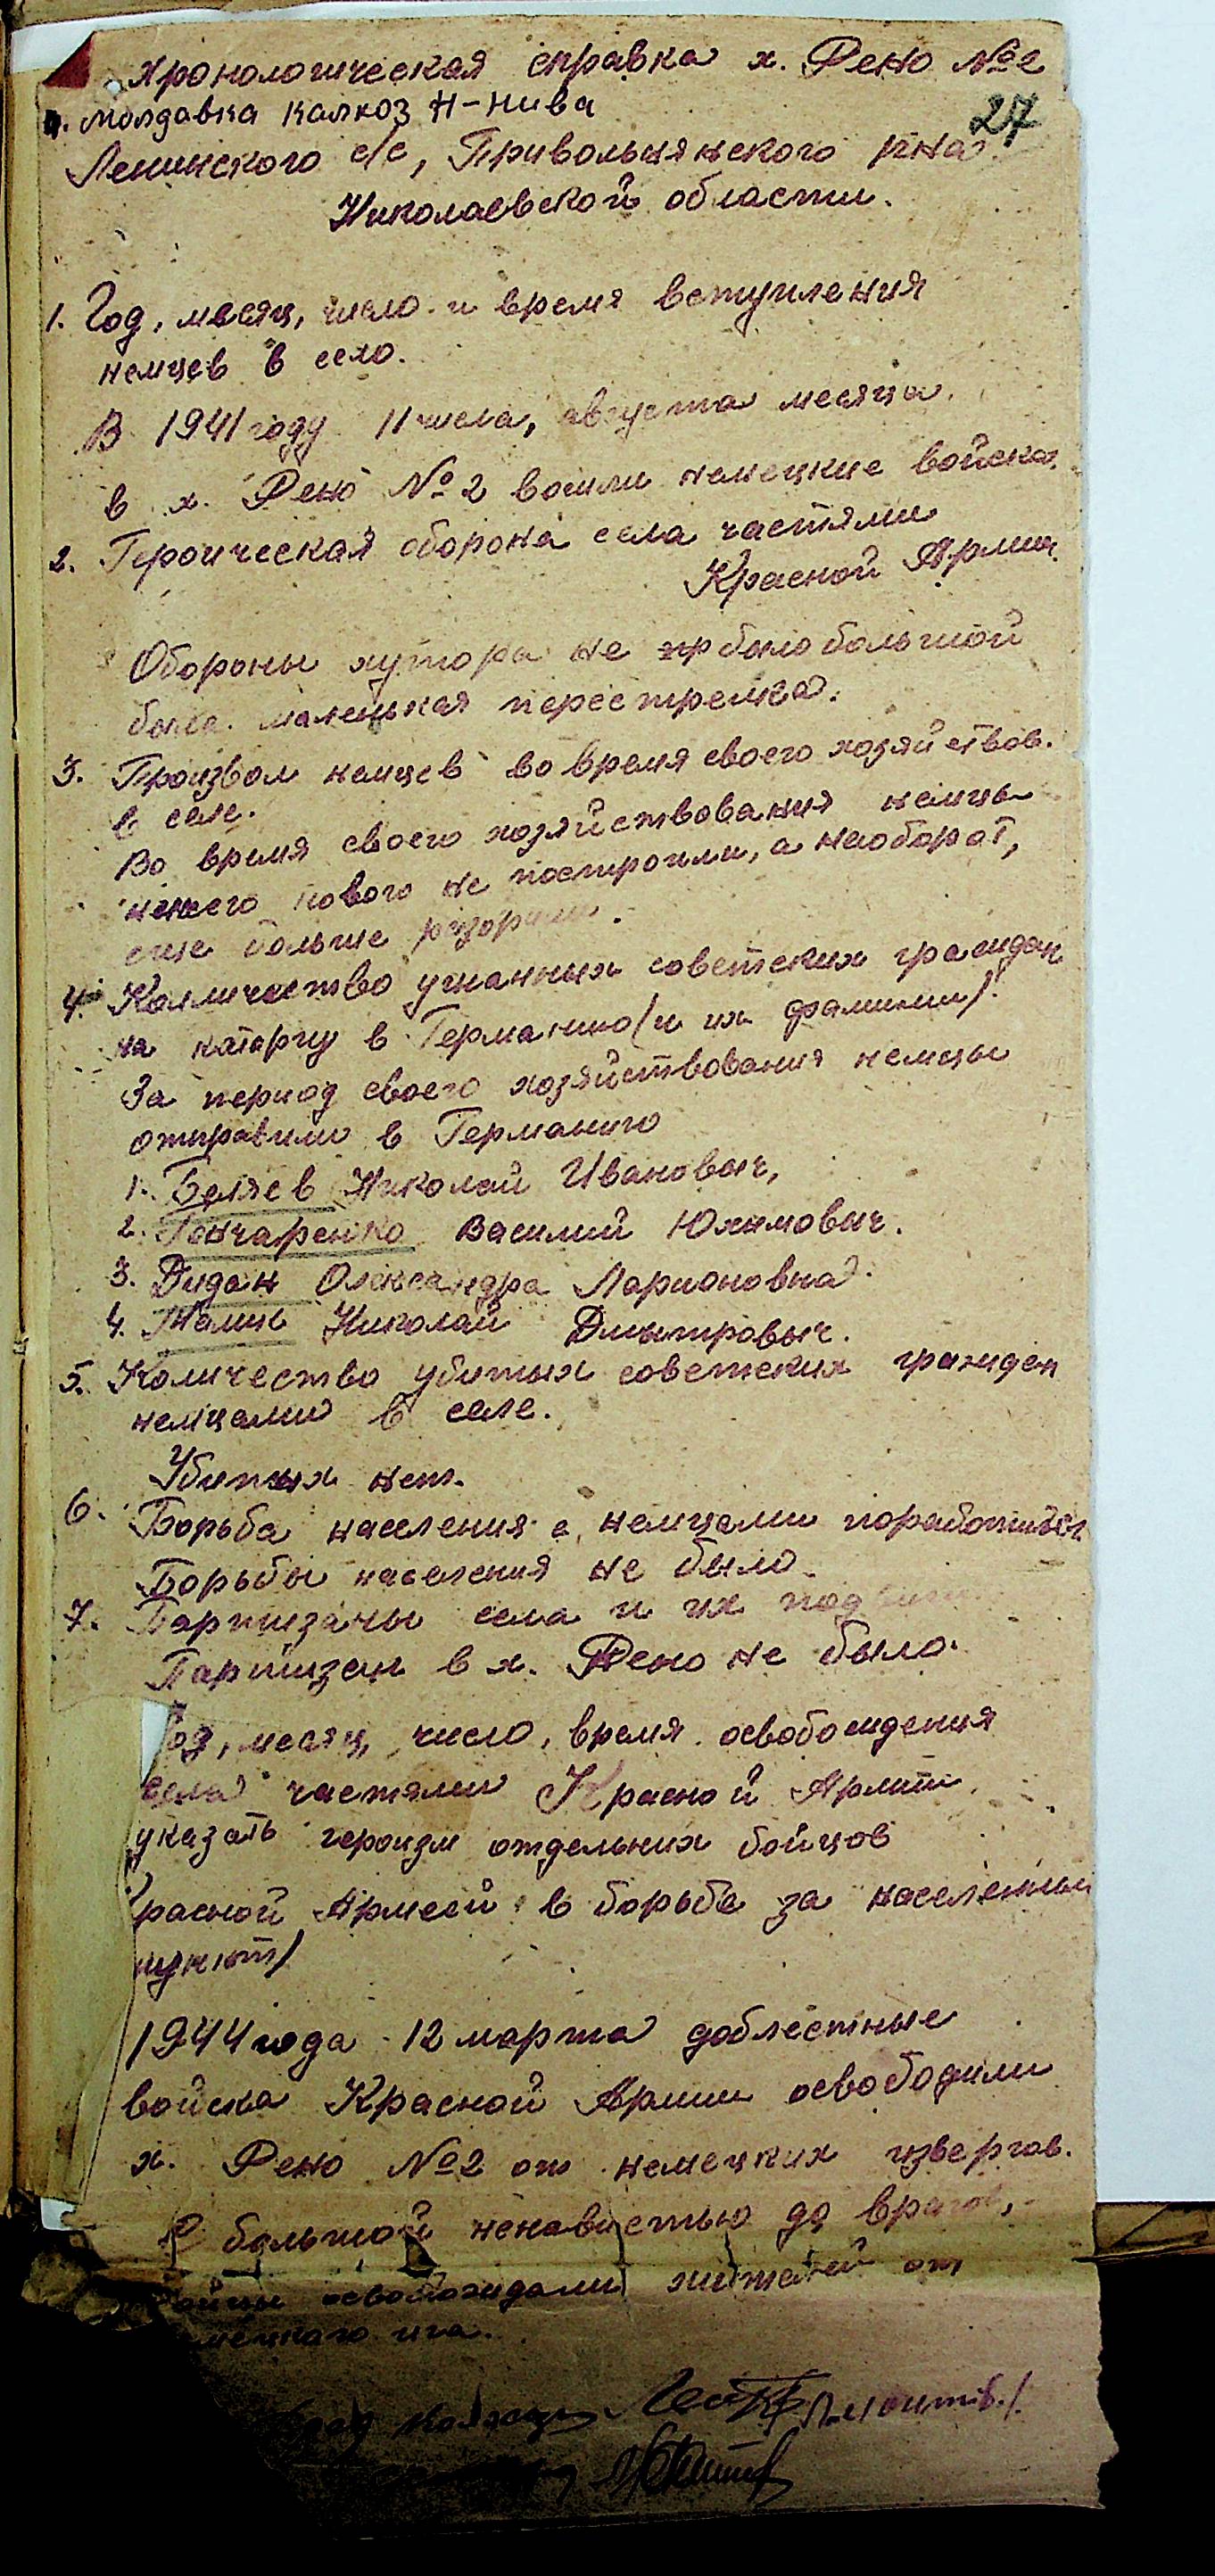 Хронологическая справка х. Рено №2
Молдавка калхоз Н-Нива
27
Ленинского с/с, Привольнянского р-на
Николаевской области.
1. Год, месяц, число и время вступления
немцев в село.
В 1941 году 11 числа, августа месяца.
в х. Рено №2 вошли немецкие войска.
2. Героическая оборона села частями
Красной Армии.
Обороны хутора не было большой
была маленькая перестрелка.
3. Произвол немцев во время своего хозяйствов.
в селе.
Во время своего хозяйствования немцы
ничего нового не построили, а наоборот,
еще больше розорили.
4. Количество угнанных советских граждан
на каторгу в Германию (и их фамилии).
За период своего хозяйствования немцы
отправили в Германию
1. Беляев Николай Ивановыч,
2. Гончаренко Василий Юхимович.
3. Дидан Олександра Ларионовна.
4. Николай Дмытровыч.
5. Количество убитых советских граждан
немцами в селе.
Убитых нет.
6. Борьба населения с немцами
Борьбы населения не было.
7. Партизаны села и их
Партизан в х. Рено не было.
Год, месяц, число, время освобождения
села частями Красной Армии
указать героизм отдельных бойцов
расной Армеей в борьбе за населенный
пункт/
1944 года 12 марта доблестные
войска Красной Армии освободили
х. Рено №2 от немецких извергов.
С большой ненавистью до врагов,
освобождали жителей от
ига.